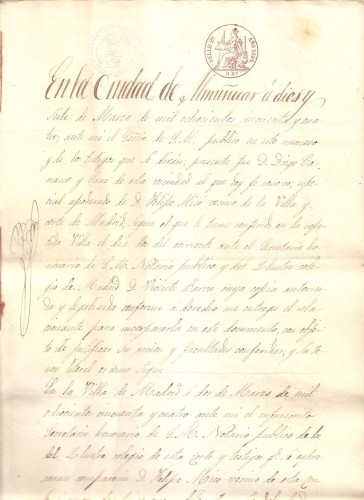 SELLO 4º AÑO 1854
En la Ciudad de Almuñecar á dies y
siete de Marzo de mil ochocientos cincuenta y cua
tro, ante mi el Señor de S. M. publico en este numero
y de los testigos que se dirán; presente fue D. Diego
y de esta vecindad al que doy fe conosco;
cial apoderado de D. Felipe Miró vecino de la Villa y
corte de Madrid, segun el que le tiene conferido en la
Villa el dia dos del corriente ante el Secretario ho
norario de S. M. Notario publico y del Ilustre cole
gio de Madrid D. Vicente cuya copia autoriza
da y legalizada conforme á derecho me entrega el rela
cionante para incorporarla en este documento, con obje
to de justificar su accion y facultades conferidas; y su te
nor literal es como sigue
En la Villa de Madrid á dos de Marzo de mil
ochocientos cincuenta y cuatro ante mi el infrascrito
Secretario honorario de S. M. Notario publico de los
del Ilustre colegio de esta Corte y testigos que se espre
saran comparecio D. Felipe Miró vecino de esta Cor